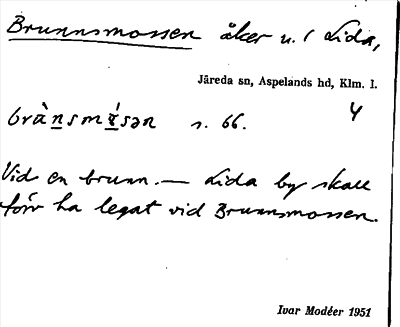 Brunnsmossen åker u. / Lida,
Järeda sn, Aspelands hd, Klm. l.
s. 66. 4
Vid en brunn. — Lida by skall
förr ha legat vid Brunnsmossen.
Ivar Modéer 1951